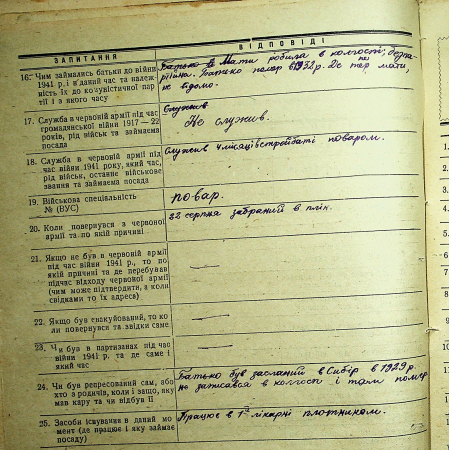 ЗАПИТАННЯ
ВІДПОВІДІ
16. Чим займались батьки до війни
1941 р. і в даний час та належ-
ність їх до комуністичної пар-
тії і з якого часу
Батько й Мати робила в колгоспі; безпа-
рійна. Батько помер в 1932 р. Де тер мати,
не відомо.
17. Служба в червоній армії під час
громадянської війни 1917 — 22
років, рід військ та займаєма
посада
Служив
Не служив.
18. Служба в червоній армії під
час війни 1941 року, який час,
рід військ, останнє військове
звання та займаєма посада
Служив 4 місяці в стройбаті поваром.
19. Військова спеціальність
№ (ВУС)
повар.
20. Коли повернувся з червоної
армії та по якій причині
22 серпня забраний в плін.
21. Якщо не був в червоній армії
під час війни 1941 р., то по
якій причині та де перебував
підчас відходу червоної армії
(чим може підтвердити, а коли
свідками то їх адреса)
22. Якщо був евакуйований, то ко-
ли повернувся та звідки саме
23. Чи був в партизанах під час
війни 1941 р. та де саме і
який час
24. Чи був репресований сам, або
хто з родичів, коли і за що, яку
мав кару та чи відбув її
Батько був засланий в Сибір в 1929 р.
не записався в колгосп і там помер
25. Засоби існування в даний мо-
мент (де працює і яку займає
посаду)
Працює в 1й лікарні плотником.